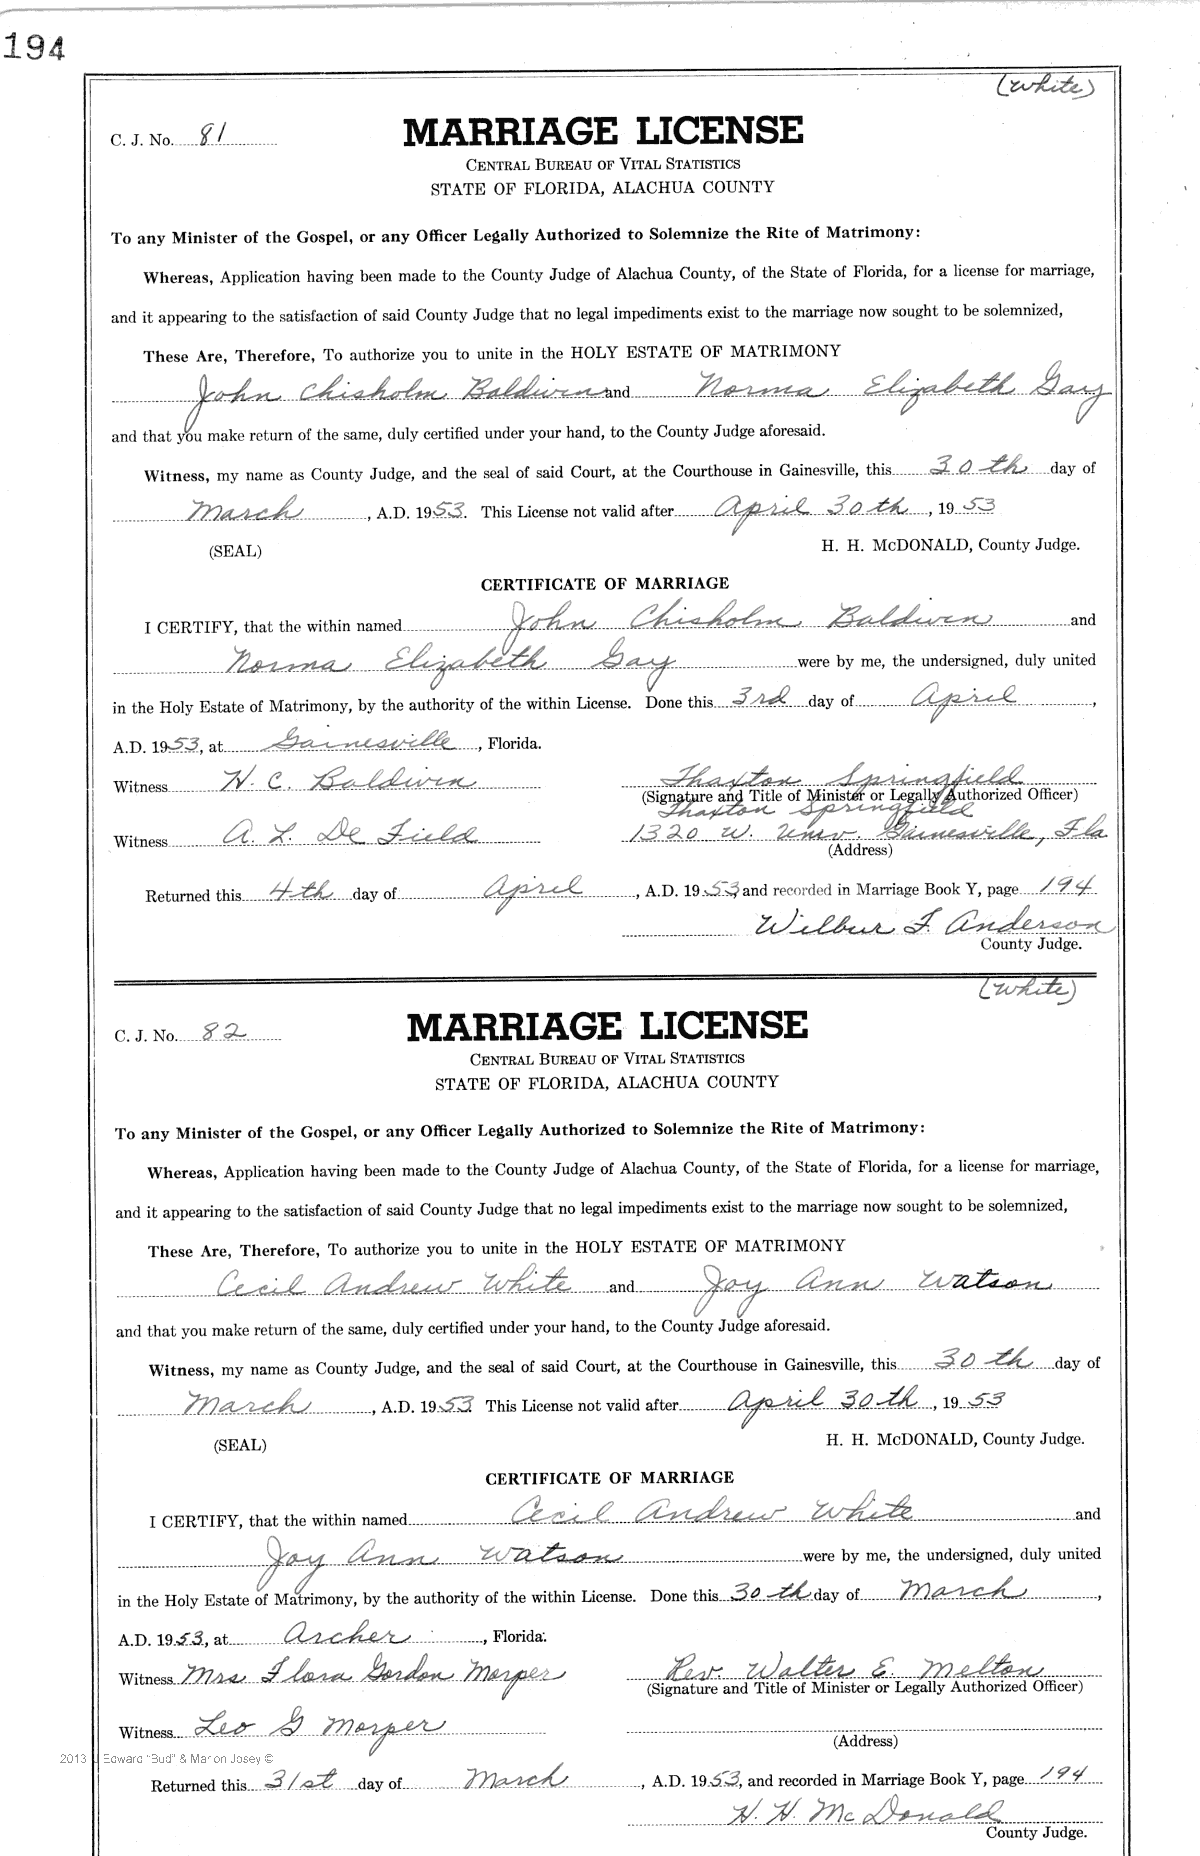 194
(White)
C. J. No. 81
MARRIAGE LICENSE
CENTRAL BUREAU OF VITAL STATISTICS
STATE OF FLORIDA, ALACHUA COUNTY
To any Minister of the Gospel, or any Officer Legally Authorized to Solemnize the Rite of Matrimony:
Whereas, Application having been made to the County Judge of Alachua County, of the State of Florida, for a license for marriage,
and it appearing to the satisfaction of said County Judge that no legal impediments exist to the marriage now sought to be solemnized,
These Are, Therefore, To authorize you to unite in the HOLY ESTATE OF MATRIMONY
John Chisholm Baldwin and Norma Elizabeth Gay
and that you make return of the same, duly certified under your hand, to the County Judge aforesaid.
Witness, my name as County Judge, and the seal of said Court, at the Courthouse in Gainesville, this 30th day of
March, A.D. 1953. This License not valid after April 30th, 1953
(SEAL) H. H. McDONALD, County Judge.
CERTIFICATE OF MARRIAGE
I CERTIFY, that the within named John Chisholm Baldwin and
Norma Elizabeth Gay were by me, the undersigned, duly united
in the Holy Estate of Matrimony, by the authority of the within License. Done this 3rd day of April,
A.D. 1953, at Gainesville, Florida.
Witness H. C. Baldwin Thaxton Springfield
(Signature and Title of Minister or Legally Authorized Officer)
Thaxton Springfield
Witness A. L. De Field 1320 W. Univ. Gainesville, Fla
(Address)
Returned this 4th day of April, A.D. 1953, and recorded in Marriage Book Y, page 194
Wilbur F. Anderson
County Judge.
(White)
C. J. No. 82
MARRIAGE LICENSE
CENTRAL BUREAU OF VITAL STATISTICS
STATE OF FLORIDA, ALACHUA COUNTY
To any Minister of the Gospel, or any Officer Legally Authorized to Solemnize the Rite of Matrimony:
Whereas, Application having been made to the County Judge of Alachua County, of the State of Florida, for a license for marriage,
and it appearing to the satisfaction of said County Judge that no legal impediments exist to the marriage now sought to be solemnized,
These Are, Therefore, To authorize you to unite in the HOLY ESTATE OF MATRIMONY
Cecil Andrew White and Joy Ann Watson
and that you make return of the same, duly certified under your hand, to the County Judge aforesaid.
Witness, my name as County Judge, and the seal of said Court, at the Courthouse in Gainesville, this 30th day of
March, A.D. 1953. This License not valid after April 30th, 1953
(SEAL) H. H. McDONALD, County Judge.
CERTIFICATE OF MARRIAGE
I CERTIFY, that the within named Cecil Andrew White and
Joy Ann Watson were by me, the undersigned, duly united
in the Holy Estate of Matrimony, by the authority of the within License. Done this 30th day of March,
A.D. 1953, at Archer, Florida.
Witness Mrs Flora Gordon Morper Rev. Walter E. Melton
(Signature and Title of Minister or Legally Authorized Officer)
Witness Leo G Morper
(Address)
2013 J Edward "Bud" & Marion Josey ©
Returned this 31st day of March, A.D. 1953, and recorded in Marriage Book Y, page 194
H. H. McDonald
County Judge.